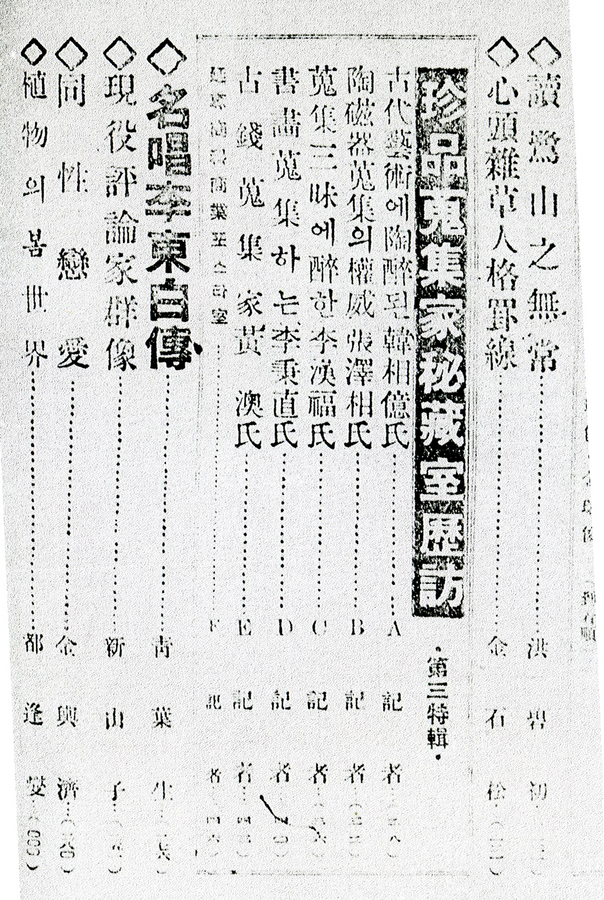 ◇讀鶯山之無常 洪碧初
◇心頭雜草人格罫線 金石松
珍品蒐集家秘藏室歷訪 ·第三特輯·
古代藝術에陶醉된韓相億氏 A記者
陶磁器蒐集의權威張澤相氏 B記者
蒐集三昧에醉한李漢福氏 C記者
書畵蒐集하는李秉直氏 D記者
古錢蒐集家黃澳氏 E記者
F記者
◇名唱李東白傳 靑葉生
◇現役評論家群像 新山子
◇同性戀愛 金興濟
◇植物의봄世界 都逢